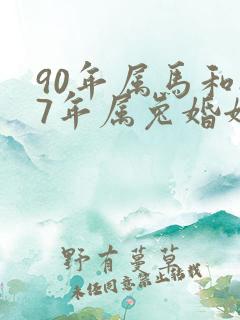 90年属马和
7年属兔婚
野有蔓草
未经同意禁止转载